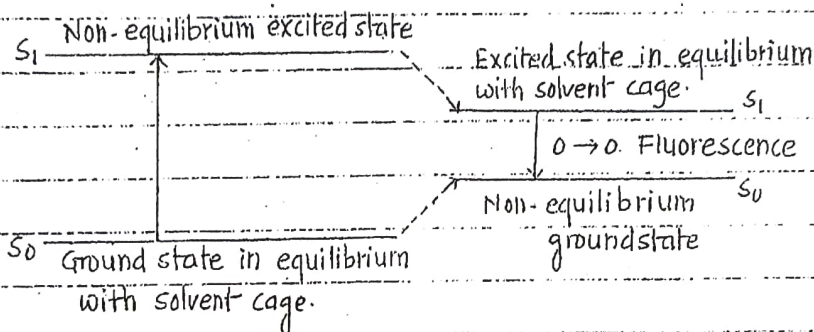 Non-equilibrium excited state
S₁
Excited state in equilibrium
with solvent cage.
S₁
0 → 0. Fluorescence
S₀
Non-equilibrium
groundstate
S₀ Ground state in equilibrium
with solvent cage.